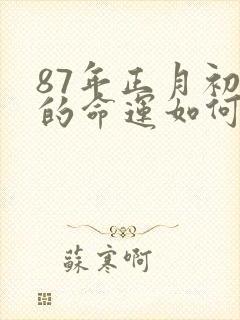 87年正月初
的命运如何
蘇寒啊